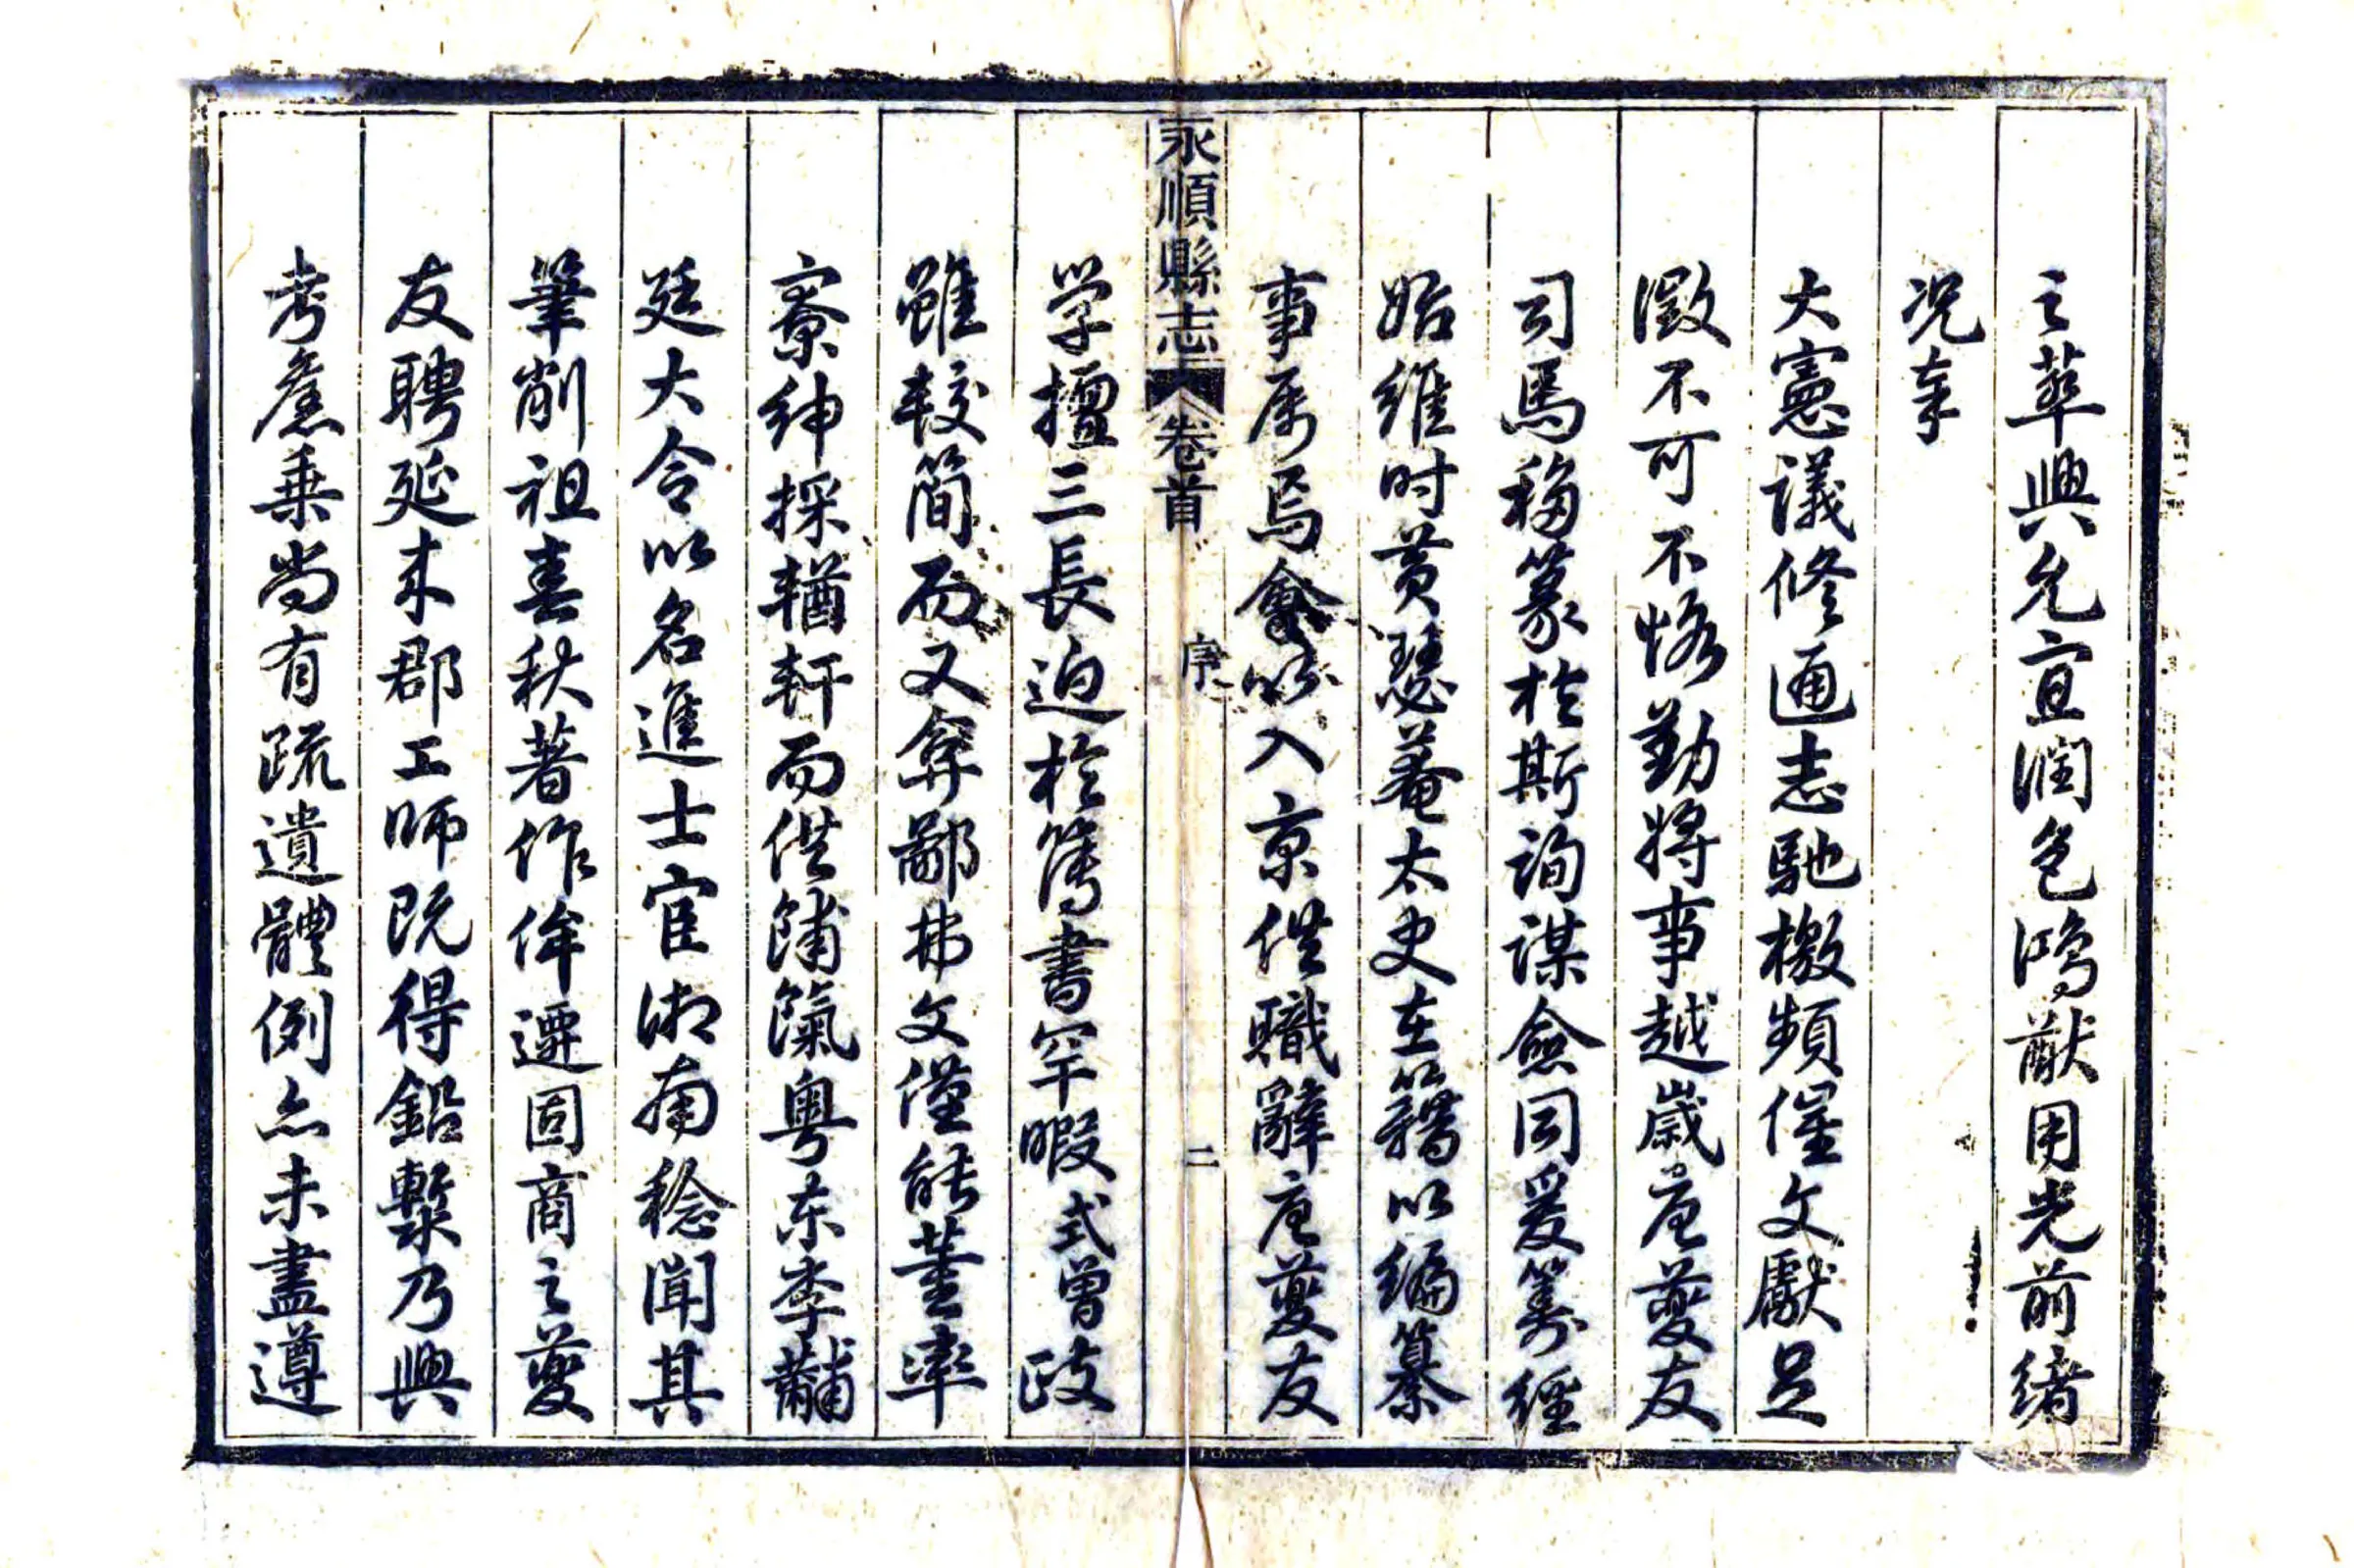 之萃興允宜潤色鴻猷用光前緒
况奉
大憲議修通志馳檄頻催文獻足
徵不可不恪勤將事越歲夏友
司馬移篆於斯詢謀僉同爰籌經
始維时黃瑟菴太史在籍以編纂
事屬焉會以入京供職辭夏友
永順縣志 卷首 序 二
学擅三長迫於簿書罕暇式曾政
雖較簡而又弇鄙弗文僅能董率
寮紳採輶軒而供餔餼粤东李黼
廷大令以名進士宦湘南稔聞其
筆削祖春秋著作侔遷固商之夏
友聘延来郡工師既得鉛槧乃興
考舊乗尚有疏遺體例亦未盡遵